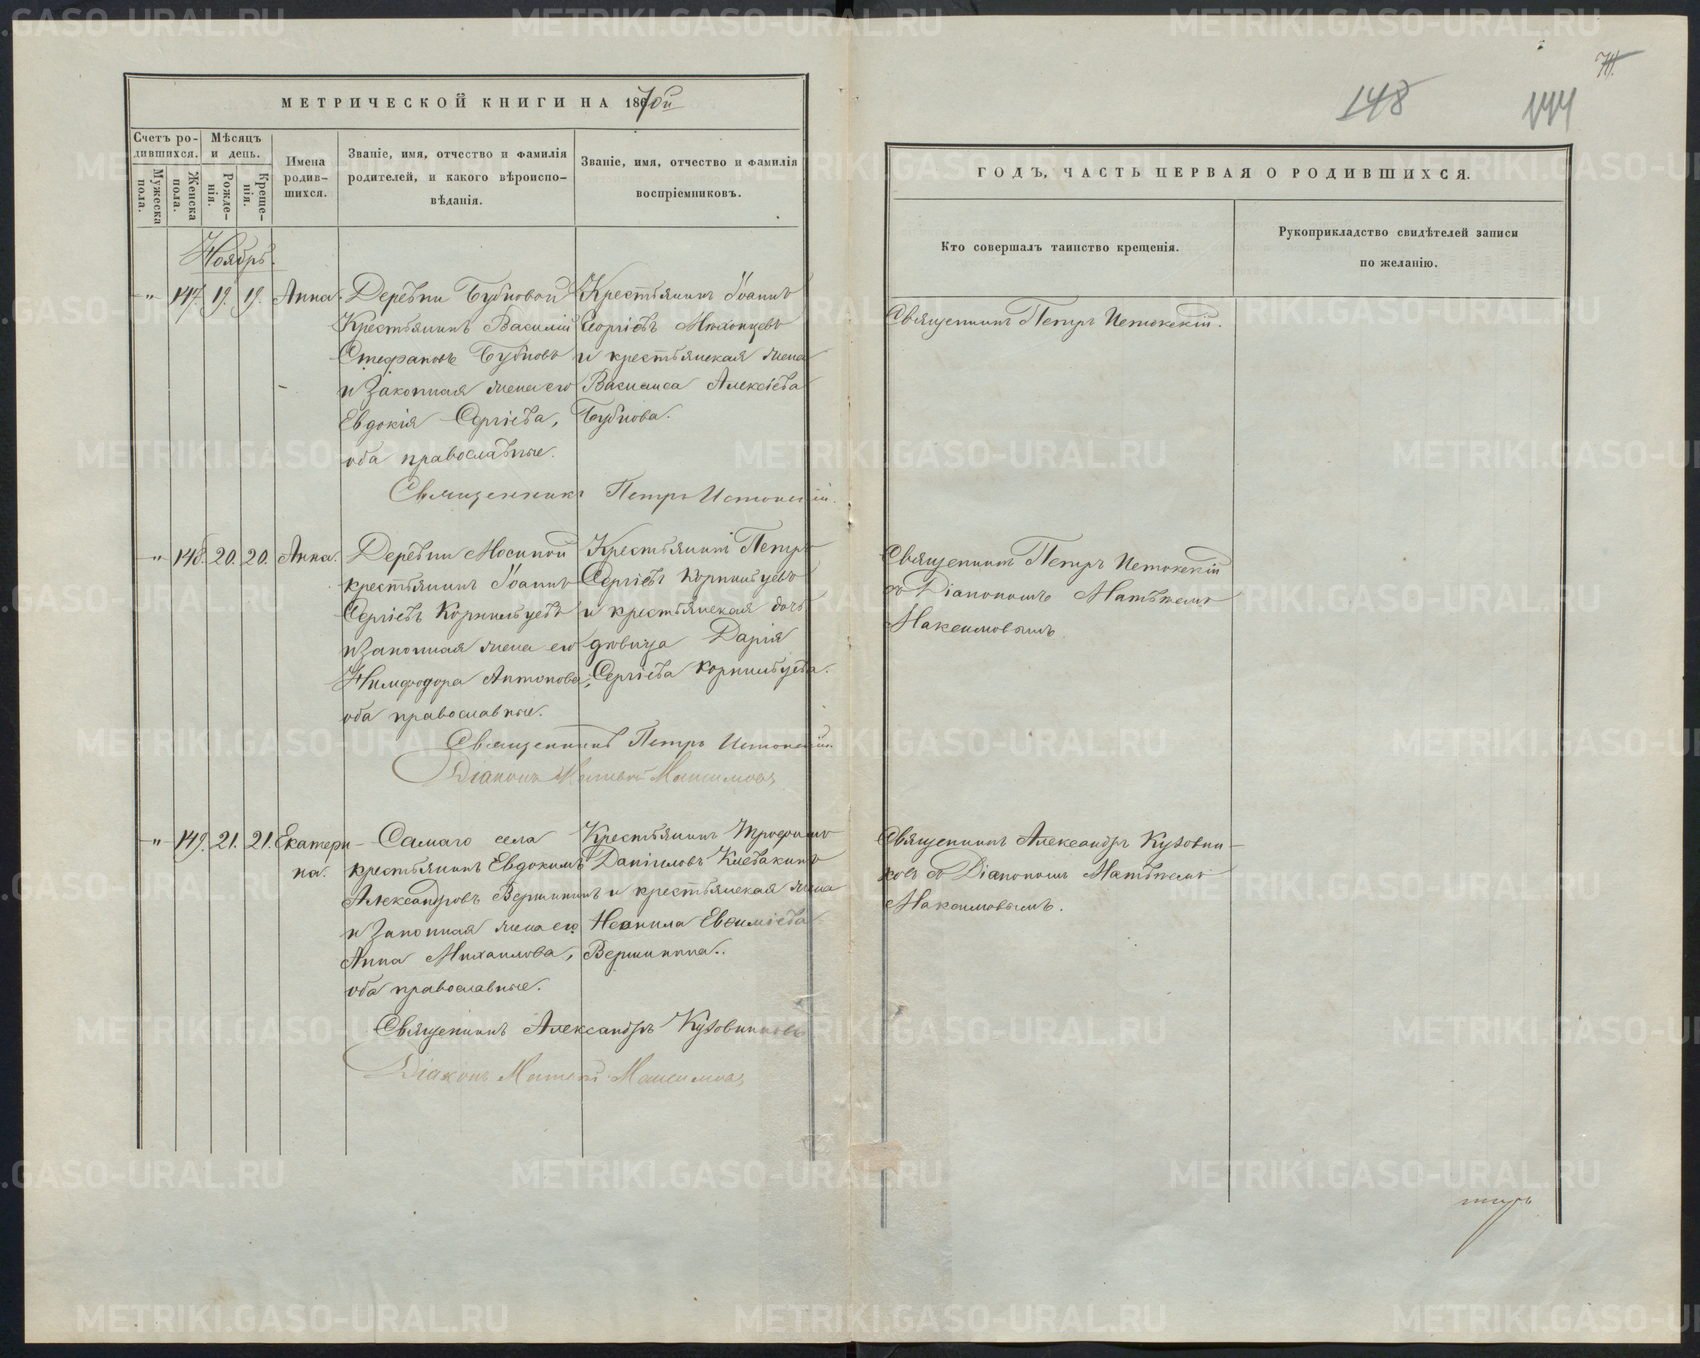 МЕТРИЧЕСКОЙ КНИГИ НА 1870й
Счетъ родившихся.
Мужеска пола.
Женска пола.
Мѣсяцъ и день.
Рожденія.
Крещенія.
Имена родившихся.
Званіе, имя, отчество и фамилія
родителей, и какого вѣроиспо-
вѣданія.
Званіе, имя, отчество и фамилія
воспріемниковъ.
Ноябрь.
" 147. 19. 19. Анна.
Деревни Бубновой
Крестьянинъ Василій
Стефановъ Бубновъ
и законная жена его
Евдокія Сергіева,
оба православные.
Крестьянинъ Іоаннъ
Георгіевъ
и крестьянская жена
Васильса Алексіева
Бубнова.
Священникъ Петръ Истокскій.
" 148. 20. 20. Анна.
Деревни Мосиной
крестьянинъ Іоаннъ
Сергіевъ Корнильцевъ
и законная жена его
Нимфодора Антонова,
оба православные.
Крестьянинъ Петръ
Сергіевъ Корнильцевъ
и крестьянская дочь
девица Дарія
Сергіева Корнильцева.
Священникъ Петръ Истокскій.
Діаконъ Матвей Максимовъ
" 149. 21. 21. Екатери-
на.
Самаго села
крестьянинъ Евдокимъ
Александровъ Вершининъ
и законная жена его
Анна Михаилова,
оба православные.
Крестьянинъ Трофимъ
Даніиловъ Клевакинъ
и крестьянская жена
Неонила Евѳиміева
Вершинина.
Священникъ Александръ Кузовниковъ
Діаконъ Матвей Максимовъ
148
144
ГОДЪ, ЧАСТЬ ПЕРВАЯ О РОДИВШИХСЯ.
Кто совершалъ таинство крещенія.
Рукоприкладство свидѣтелей записи
по желанію.
Священникъ Петръ Истокскій.
Священникъ Петръ Истокскій
съ Діакономъ Матвеемъ
Максимовымъ.
Священникъ Александръ Кузовни-
ковъ съ Діакономъ Матвеемъ
Максимовымъ.
METRIKI.GASO-URAL.RU